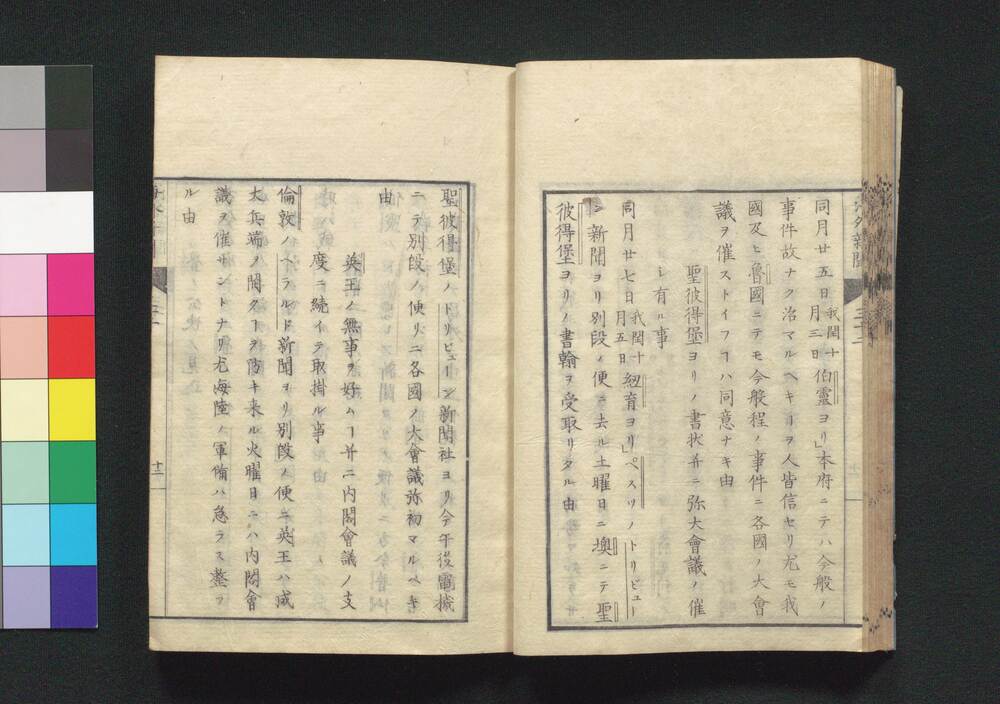 海外新聞
三十二
同月廿五日我閏十月三日伯靈ヨリ」本府ニテハ今般ノ
事件故ナク治マルヘキヿヲ人皆信セリ尤モ我
國及ヒ魯國ニテモ今般程ノ事件ニ各國ノ大會
議ヲ催ストイフヿハ同意ナキ由
聖彼得堡ヨリノ書状并ニ弥大會議ノ催
シ有ル事
同月廿七日我閏十月五日紐育ヨリ」ペスリノトリビュー
ン新聞ヨリ別段ノ便ニ去ル土曜日ニ墺ニテ聖
彼得堡ヨリノ書翰ヲ受取リタル由
聖彼得堡ノトリビューン新聞社ヨリ今午後電機
ニテ別段ノ便リニ各國ノ大會議弥初マルベキ
由
英王ノ無事ヲ好ムヿ并ニ内閣會議ノ支
度ニ続イテ取掛ル事
倫敦ノヘラルド新聞ヨリ別段ノ便ニ英王ハ成
丈兵端ノ開クヿヲ防キ来ル火曜日ニハ内閣會
議ヲ催サントナリ尤海陸ノ軍備ハ急ラス整フ
ル由
十二